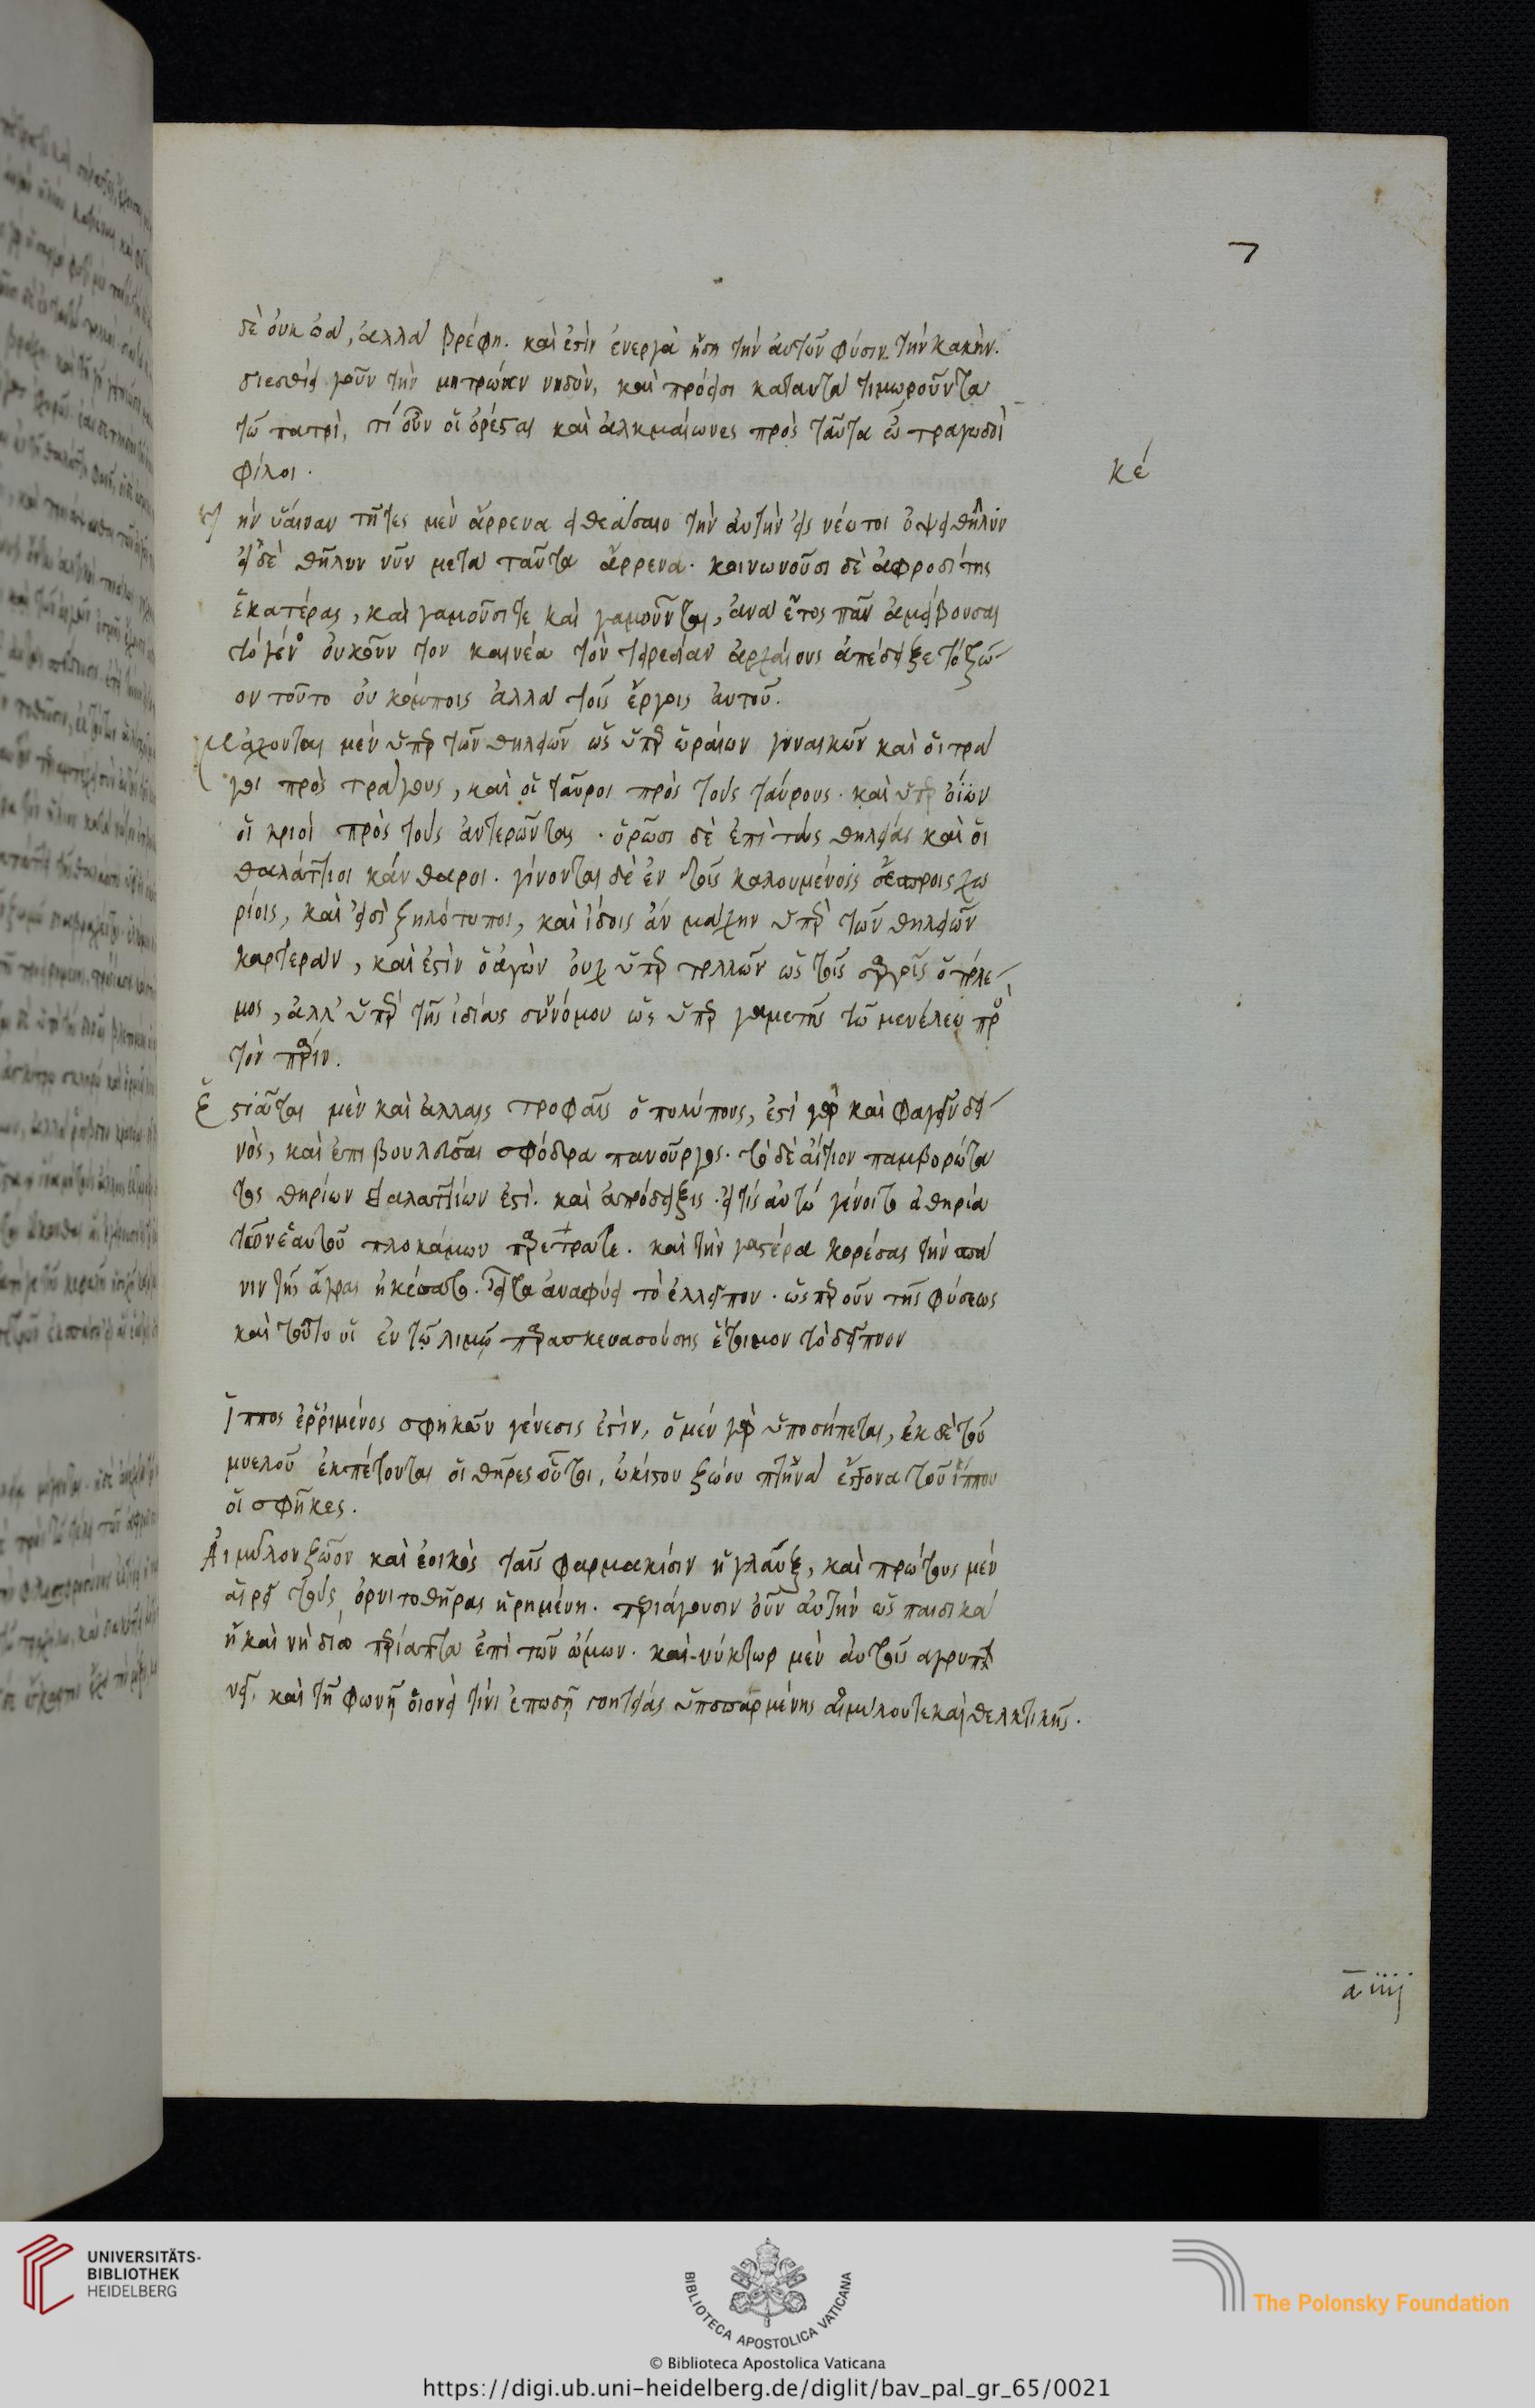 7
δὲ οὐκ ὠὰ, ἀλλὰ βρέφη. καὶ ἐστὶν ἐνεργὰ ἤδη τὴν αὐτῶν φύσιν τὴν κακήν.
διεσθίει γοῦν τὴν μητρώαν νηδὺν, καὶ πρόεισι κατὰ ταῦτα τιμωροῦντα
τῶ πατρὶ, τί οὖν οἱ ὀρέσται καὶ ἀλκμαίωνες πρὸς ταῦτα ὦ τραγωδοὶ
φίλοι.
κέ
τὴν ὕαιναν τῆτες μὲν ἄρρενα εἰ θεάσαιο τὴν αὐτὴν ἐς νέωτα ὄψει θῆλυν
εἰ δὲ θῆλυν νῦν μετὰ ταῦτα ἄρρενα. κοινωνοῦσι δὲ ἀφροδίτης
ἑκατέρας, καὶ γαμοῦσί τε καὶ γαμοῦνται, ἀνὰ ἔτος πᾶν ἀμείβουσαι
τὸ γένος οὐκοῦν τον καινέα τὸν τειρεσίαν ἀρχαίους ἀπέδειξε τὸ ζῶ
ον τοῦτο οὐ κόμποις ἀλλὰ τοῖς ἔργοις αὐτοῦ.
Μάχονται μὲν ὑπὲρ τῶν θηλειῶν ὡς ὑπὲρ ὡραίων γυναικῶν καὶ οἱ τρά
γοι πρὸς τράγους, καὶ οἱ ταῦροι πρὸς τοὺς ταύρους. καὶ ὑπὲρ οἰῶν
οἱ κριοὶ πρὸς τοὺς ἀντερῶντας. ὁρῶσι δὲ ἐπὶ τὰς θηλείας καὶ οἱ
θαλάττιοι κάνθαροι. γίνονται δὲ ἐν τοῖς καλουμένοις χω
ρίοις, καὶ εἰσὶ ζηλότυποι, καὶ ἴδοις ἂν μάχην ὑπὲρ τῶν θηλειῶν
καρτερὰν, καὶ ἐστὶν ὁ ἀγὼν οὐχ ὑπὲρ πολλῶν ὡς τοῖς σπάροις ὁ πόλε
μος, ἀλλ' ὑπὲρ τῆς ἰδίας συννόμου ὡς ὑπὲρ γαμετῆς τῶ μενέλεω πρὸς
τὸν πάριν.
Ἑστιᾶται μὲν καὶ ἄλλαις τροφαῖς ὁ πολύπους, ἐστὶ γὰρ καὶ φαγεῖν δει
νὸς, καὶ ἐπιβουλεῦσαι σφόδρα πανοῦργος. τὸ δὲ αἴτιον παμβορώτα
τος θηρίων θαλαττίων ἐστὶ. καὶ ἀπόδειξις. εἴ τις αὐτῶ γένοιτο ἀθηρία
τῶν ἑαυτοῦ πλοκάμων παρέτραγε. καὶ τὴν γαστέρα κορέσας τὴν σπά
νιν τῆς ἄγρας ἠκέσατο. εἶτα ἀναφύει τὸ ἐλλεῖπον. ὥσπερ οὖν τῆς φύσεως
καὶ τοῦτο οἱ ἐν τῷ λιμῷ παρασκευασούσης ἕτοιμον τὸ δεῖπνον
Ἵππος ἐρριμένος σφηκῶν γένεσις ἐστὶν, ὁ μὲν γὰρ ὑποσήπεται, ἐκ δὲ τοῦ
μυελοῦ ἐκπέτονται οἱ θῆρες οὗτοι, ὠκίστου ζώου πτηνὰ ἔκγονα τοῦ ἵππου
οἱ σφῆκες.
Αἱμύλον ζῶον καὶ ἐοικὸς ταῖς φαρμακίσιν ἡ γλαῦξ, καὶ πρώτους μὲν
αἱρεῖ τοὺς ὀρνιτοθῆρας ἡρημένη. περιάγουσιν οὖν αὐτὴν ὡς παιδικὰ
ἢ καὶ νὴ δία περίαπτα ἐπὶ τῶν ὤμων. καὶ νύκτωρ μὲν αὐτοῖς ἀγρυπ
νεῖ, καὶ τῆ φωνῆ οἱονεί τινι ἐπωδῆ γοητείας ὑπεσπαρμένης αἱμύλου τε καὶ θελκτικῆς.
a iiij
UNIVERSITÄTS-
BIBLIOTHEK
HEIDELBERG
BIBLIOTECA APOSTOLICA VATICANA
The Polonsky Foundation
© Biblioteca Apostolica Vaticana
https://digi.ub.uni-heidelberg.de/diglit/bav_pal_gr_65/0021